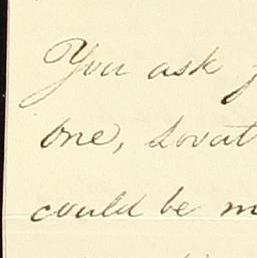 You ask
one, Lovat
could be m